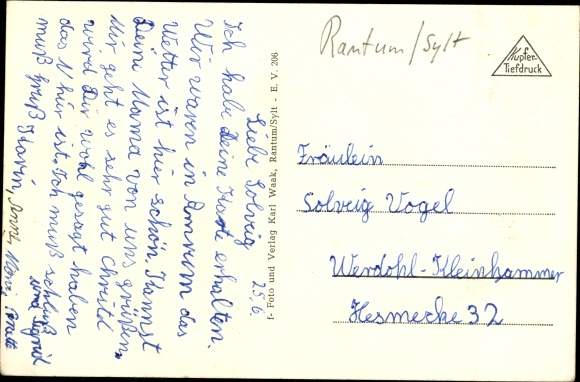 Liebe Solveig 25.6.
Ich habe Deine Karte erhalten.
Wir waren in Amrum das
Wetter ist hier schön. Kannst
Deine Mama von uns grüßen.
Mir geht es sehr gut Christel
wird Dir wohl gesagt haben
das N hir ist. Ich muß schluß
muß Gruß Karin,
und Sigrid
f- Foto und Verlag Karl Waak, Rantum/Sylt - E. V. 206
Rantum/Sylt
Kupfer-
Tiefdruck
Fräulein
Solveig Vogel
Werdohl-Kleinhammer
Hesmecke 32